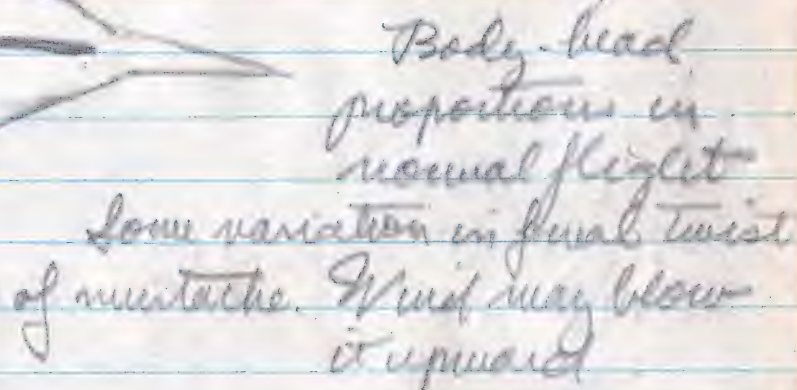 Body-head
proportions in
normal flight
Some variation in final twist
of mustache. Wind may blow
it upward